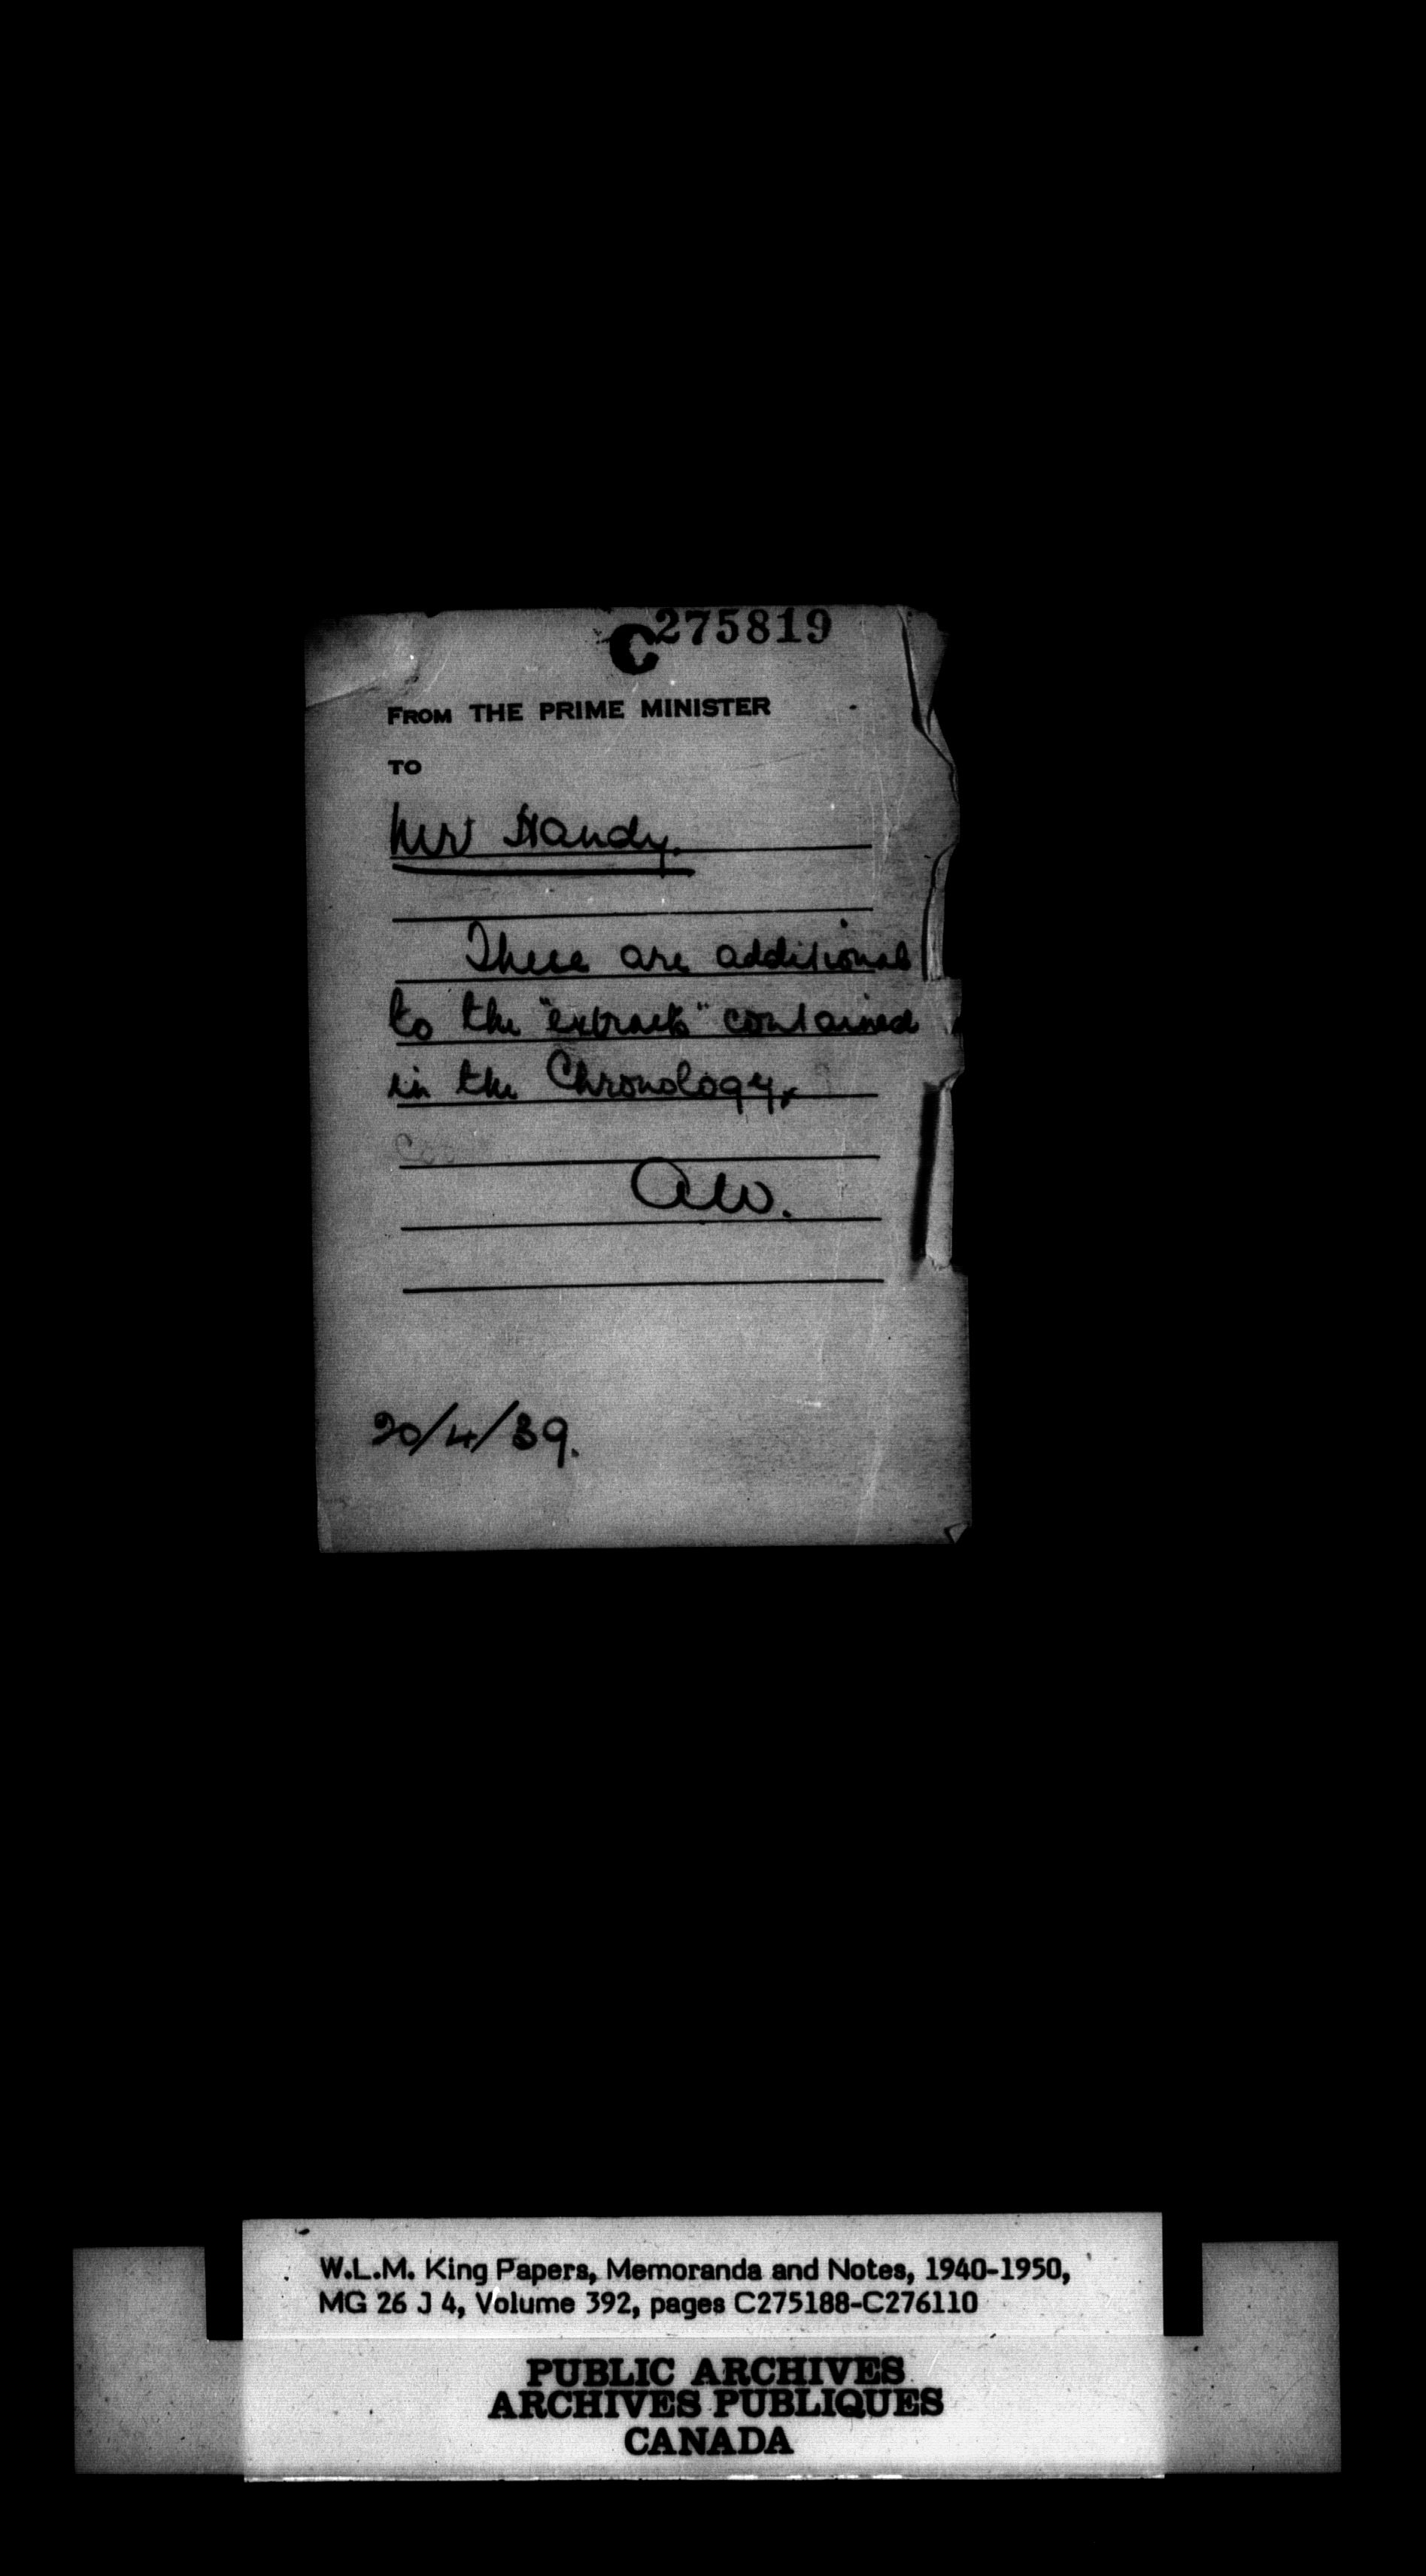 C275819
FROM THE PRIME MINISTER
TO
Mr Handy.
These are additional
to the "extracts" contained
in the Chronology.
AW.
20/4/39.
W.L.M. King Papers, Memoranda and Notes, 1940-1950,
MG 26 J 4, Volume 392, pages C275188-C276110
PUBLIC ARCHIVES
ARCHIVES PUBLIQUES
CANADA